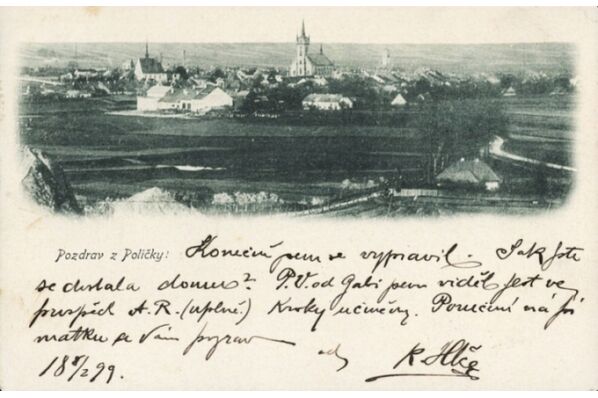 Pozdrav z Poličky! Konečně jsem se vypravil. Jak jste
se dostala domu? P.V. od Gabi jsem viděl jest ve
prospěch A.R. (uplně.) Kroky učiněny. Poručení na
matku a Vám pozdrav od
18 2 99.